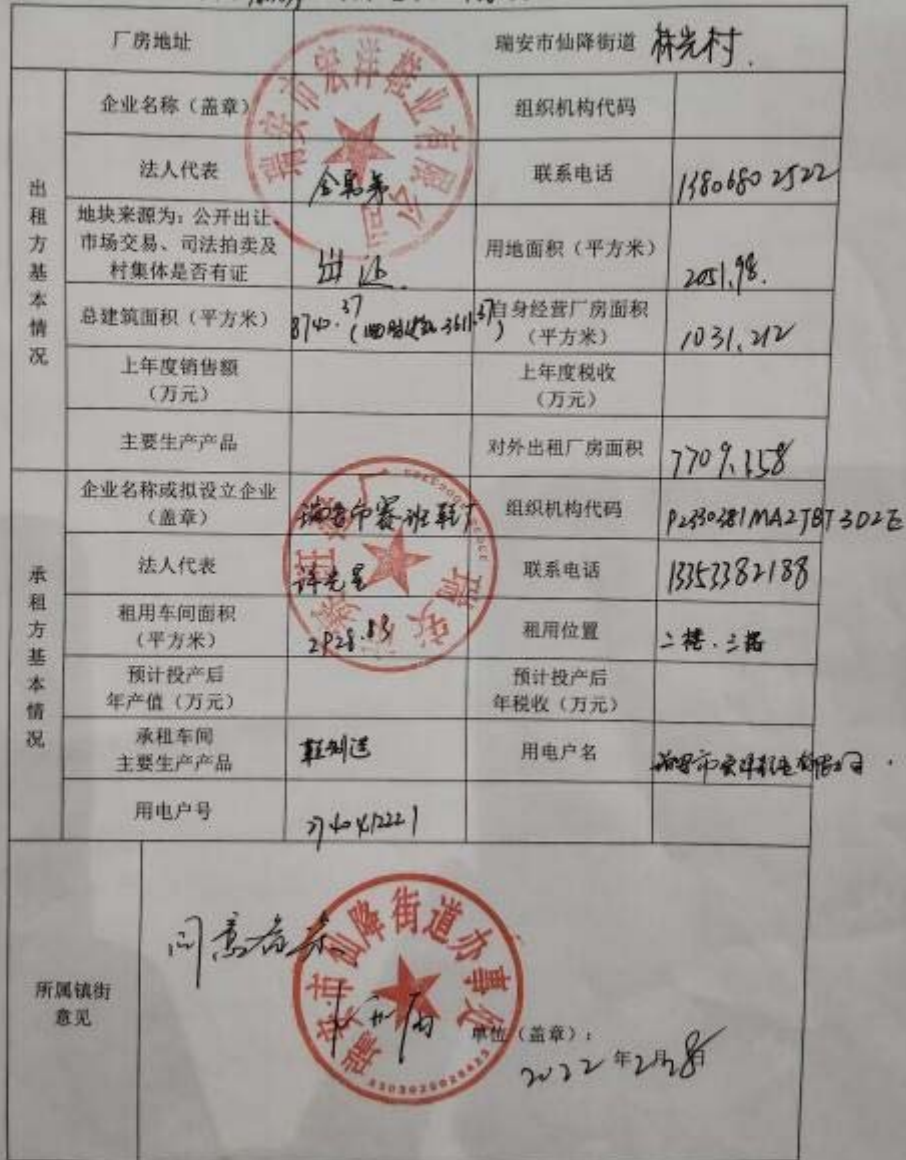 厂房地址 瑞安市仙降街道 林光村.
出租方基本情况
企业名称（盖章） 组织机构代码
瑞安市宏洋鞋业有限公司
法人代表 联系电话 13806802522
地块来源为：公开出让、市场交易、司法拍卖及村集体是否有证 出让. 用地面积（平方米） 2051.98.
总建筑面积（平方米） 8740.37 自身经营厂房面积（平方米） 1031.212
上年度销售额（万元） 上年度税收（万元）
主要生产产品 对外出租厂房面积 7709.158
承租方基本情况
企业名称或拟设立企业（盖章） 瑞安市赛班鞋厂 组织机构代码
法人代表 联系电话 13353382188
租用车间面积（平方米） 2928.83 租用位置 二楼.三楼
预计投产后年产值（万元） 预计投产后年税收（万元）
承租车间主要生产产品 鞋制造 用电户名 瑞安市宏洋鞋业有限公司
用电户号
所属镇街意见
同意备案
瑞安市仙降街道办事处
单位（盖章）：
2022年2月28日